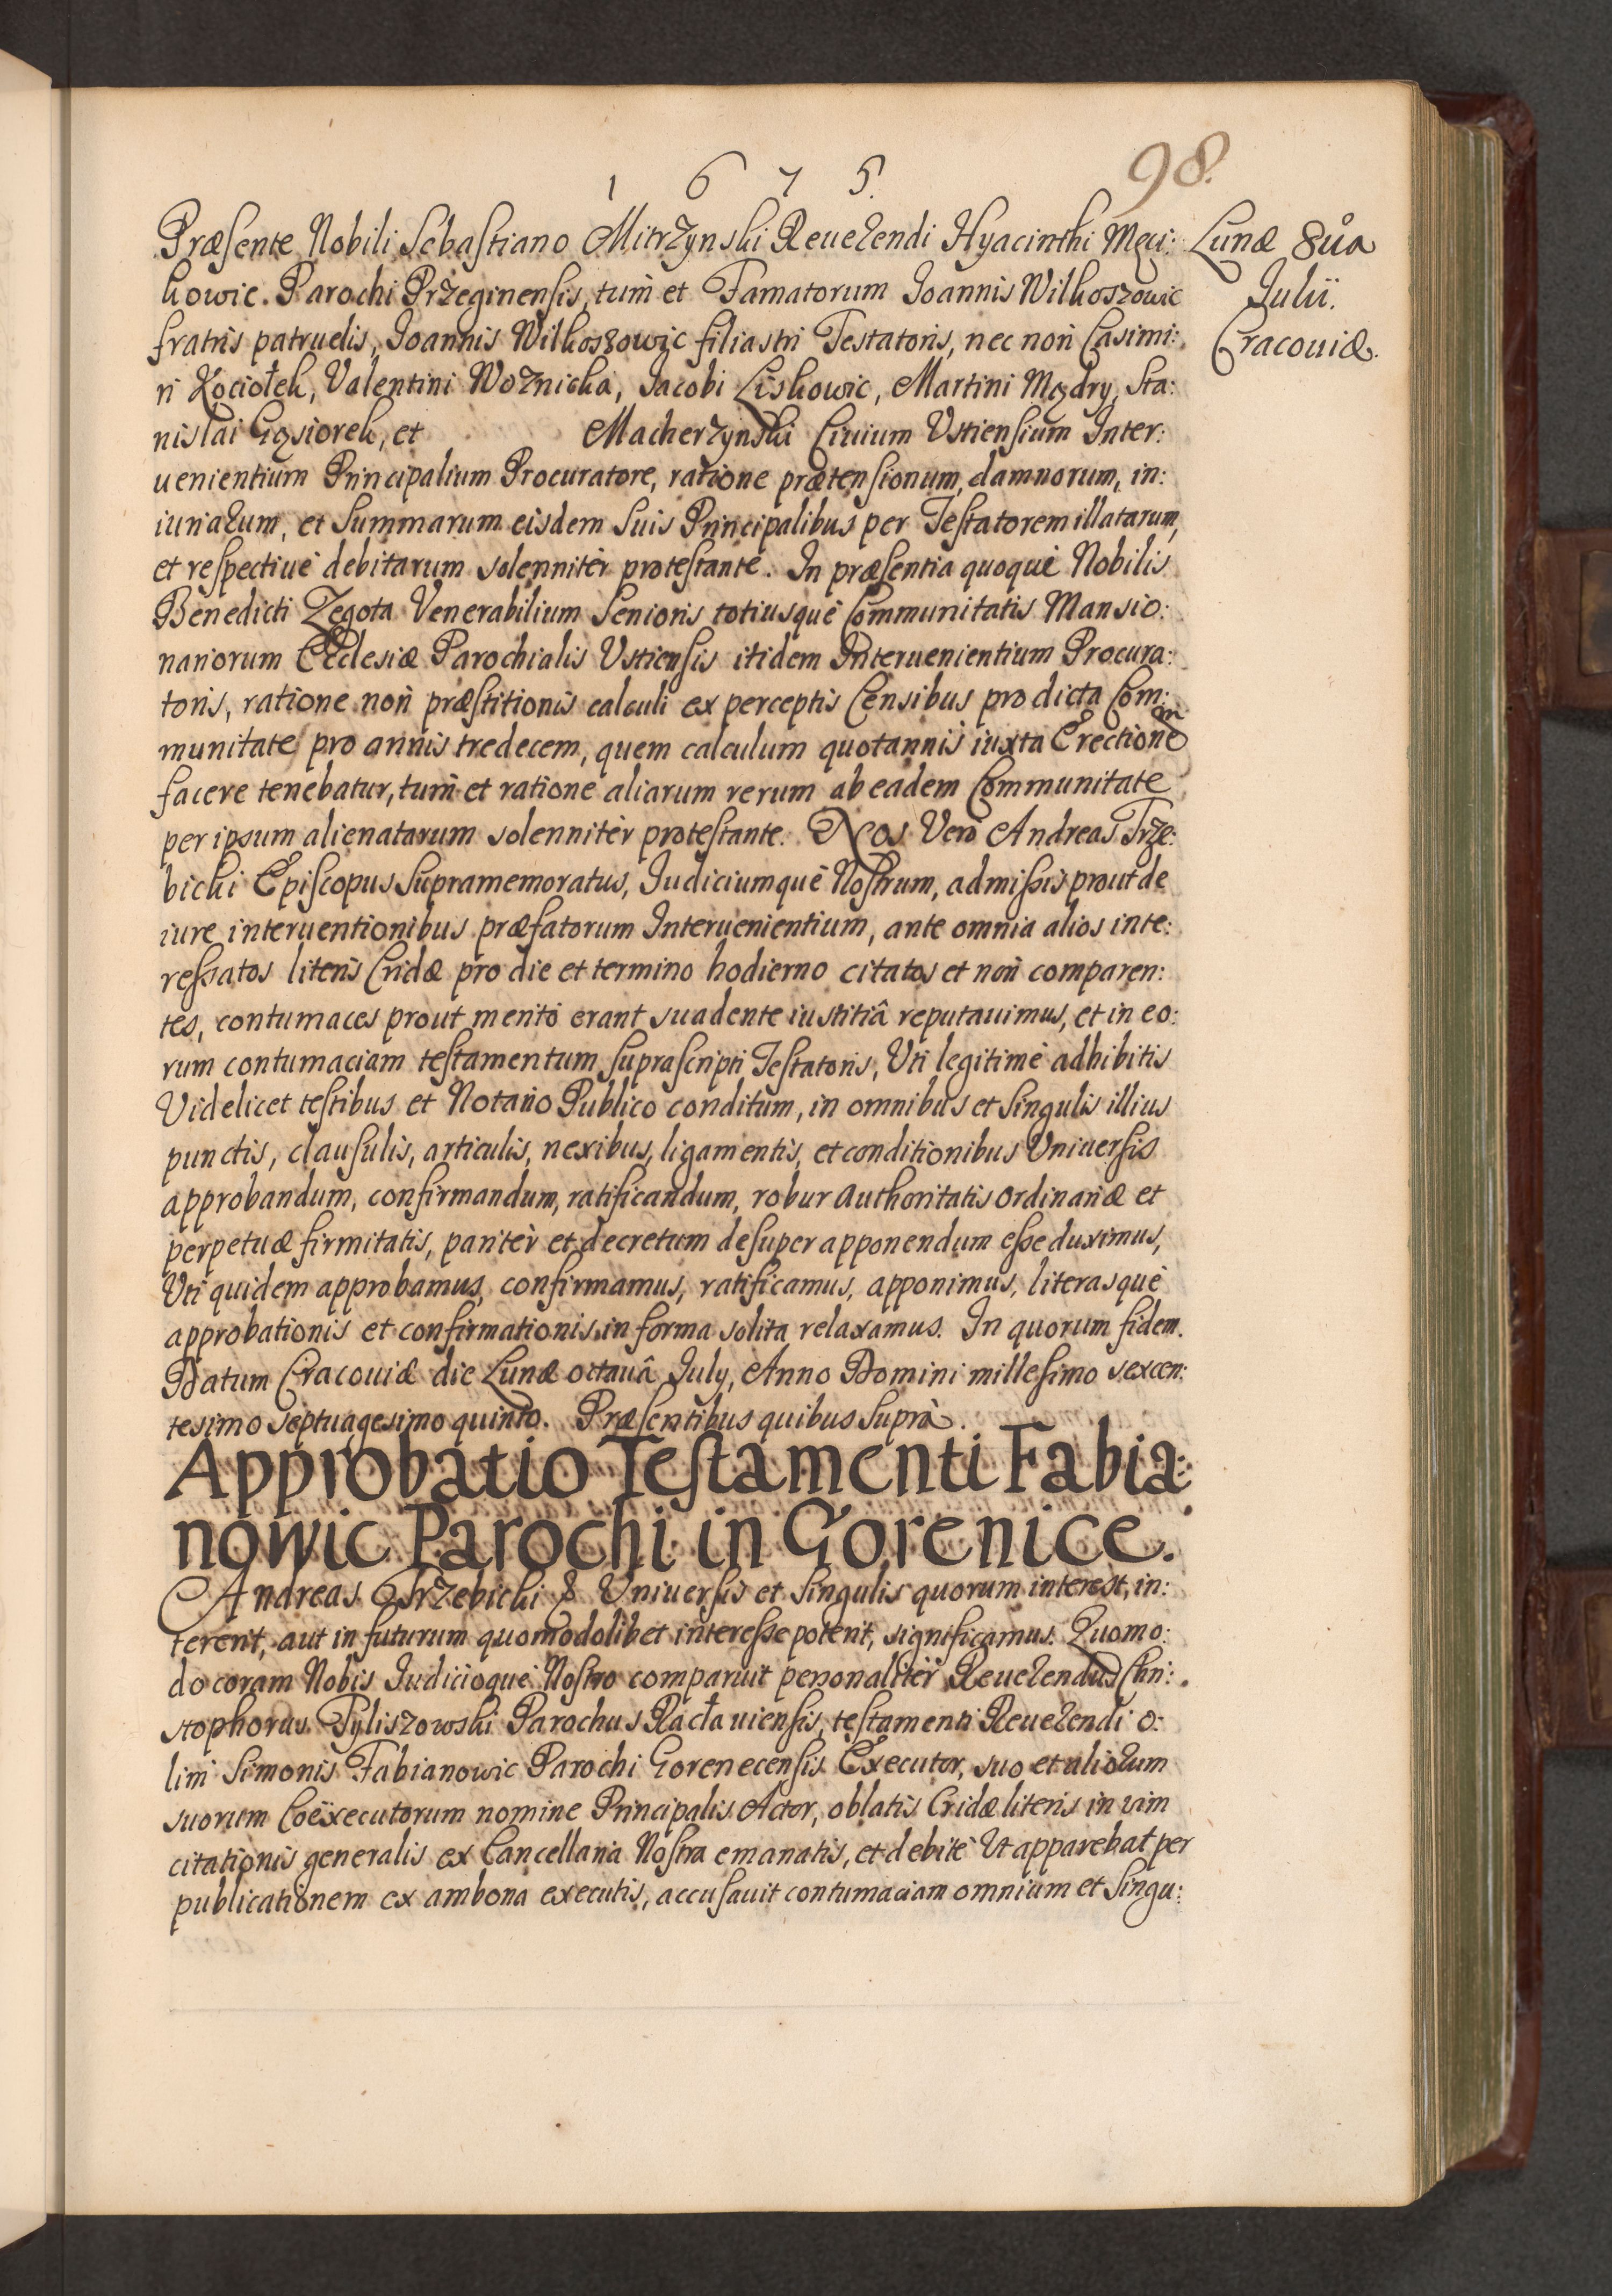 1675.
98.
Lunæ 8ua
Julii.
Cracouiæ.
Præsente Nobili Sebastiano Mitrzynski Reuerendi Hyacinthi Męci:
kowic. Parochi Przeginensis, tum et Famatorum Joannis Wilkoszowic
fratris patruelis, Joannis Wilkoszowic filiastri Testatoris, nec non Casimi:
ri Kociołek, Valentini Woznicka, Jacobi Liskowic, Martini Mądry, Sta:
nislai Gąsiorek, et Macherzynski Ciuium Vstiensium Inter:
uenientium Principalium Procuratore, ratione prætensionum, damnorum, in:
iuriarum, et Summarum eisdem suis Principalibus per Testatorem illatarum,
et respectiuè debitarum solennitèr protestante. In præsentia quoquè Nobilis
Benedicti Zegota Venerabilium Senioris totiusquè Communitatis Mansio:
nariorum Ecclesiæ Parochialis Vstiensis itidem Interuenientium Procura:
toris, ratione non præstitionis calculi ex perceptis Censibus pro dicta Com:
munitate pro annis tredecem, quem calculum quotannis iuxta Erectionem
facere tenebatur, tum et ratione aliarum rerum ab eadem Communitate
per ipsum alienatarum solennitèr protestante. Nos Verò Andreas Trze:
bicki Episcopus Supramemoratus, Judiciumquè Nostrum, admissis prout de
iure interuentionibus præfatorum Interuenientium, ante omnia alios inte:
ressatos literis Cridæ pro die et termino hodierno citatos et non comparen:
tes, contumaces prout meritò erant suadente iustitiâ reputauimus, et in eo:
rum contumaciam testamentum suprascripti Testatoris, Vti legitimè adhibitis
Videlicet testibus et Notario Publico conditum, in omnibus et singulis illius
punctis, clausulis, articulis, nexibus, ligamentis, et conditionibus Vniuersis
approbandum, confirmandum, ratificandum, robur Authoritatis ordinariæ et
perpetuæ firmitatis, paritèr et decretum desuper apponendum esse duximus,
Vti quidem approbamus, confirmamus, ratificamus, apponimus, literasquè
approbationis et confirmationis in forma solita relaxamus. In quorum fidem.
Datum Cracouiæ die Lunæ octauâ July, Anno Domini millesimo sexcen:
tesimo septuagesimo quinto. Præsentibus quibus suprà.
Approbatio Testamenti Fabia:
nowic Parochi in Gorenice.
Andreas Trzebicki & Vniuersis et singulis quorum interest, in:
terent, aut in futurum quomodolibet interesse poterit, significamus. Quomo:
do coram Nobis Judicioquè Nostro comparuit personalitèr Reuerendus Chri:
stophorus Pyliszowski Parochus Racłauiensis, testamenti Reuerendi o:
lim Simonis Fabianowic Parochi Gorenecensis Executor, suo et aliorum
suorum Coëxecutorum nomine Principalis Actor, oblatis Cridæ literis in vim
citationis generalis ex Cancellaria Nostra emanatis, et debitè Vt apparebat per
publicationem ex ambona executis, accusauit contumaciam omnium et singu: